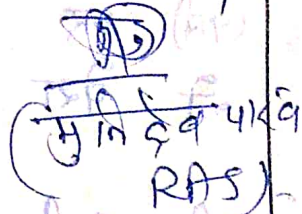 (मुनि देव यादव
RAS)